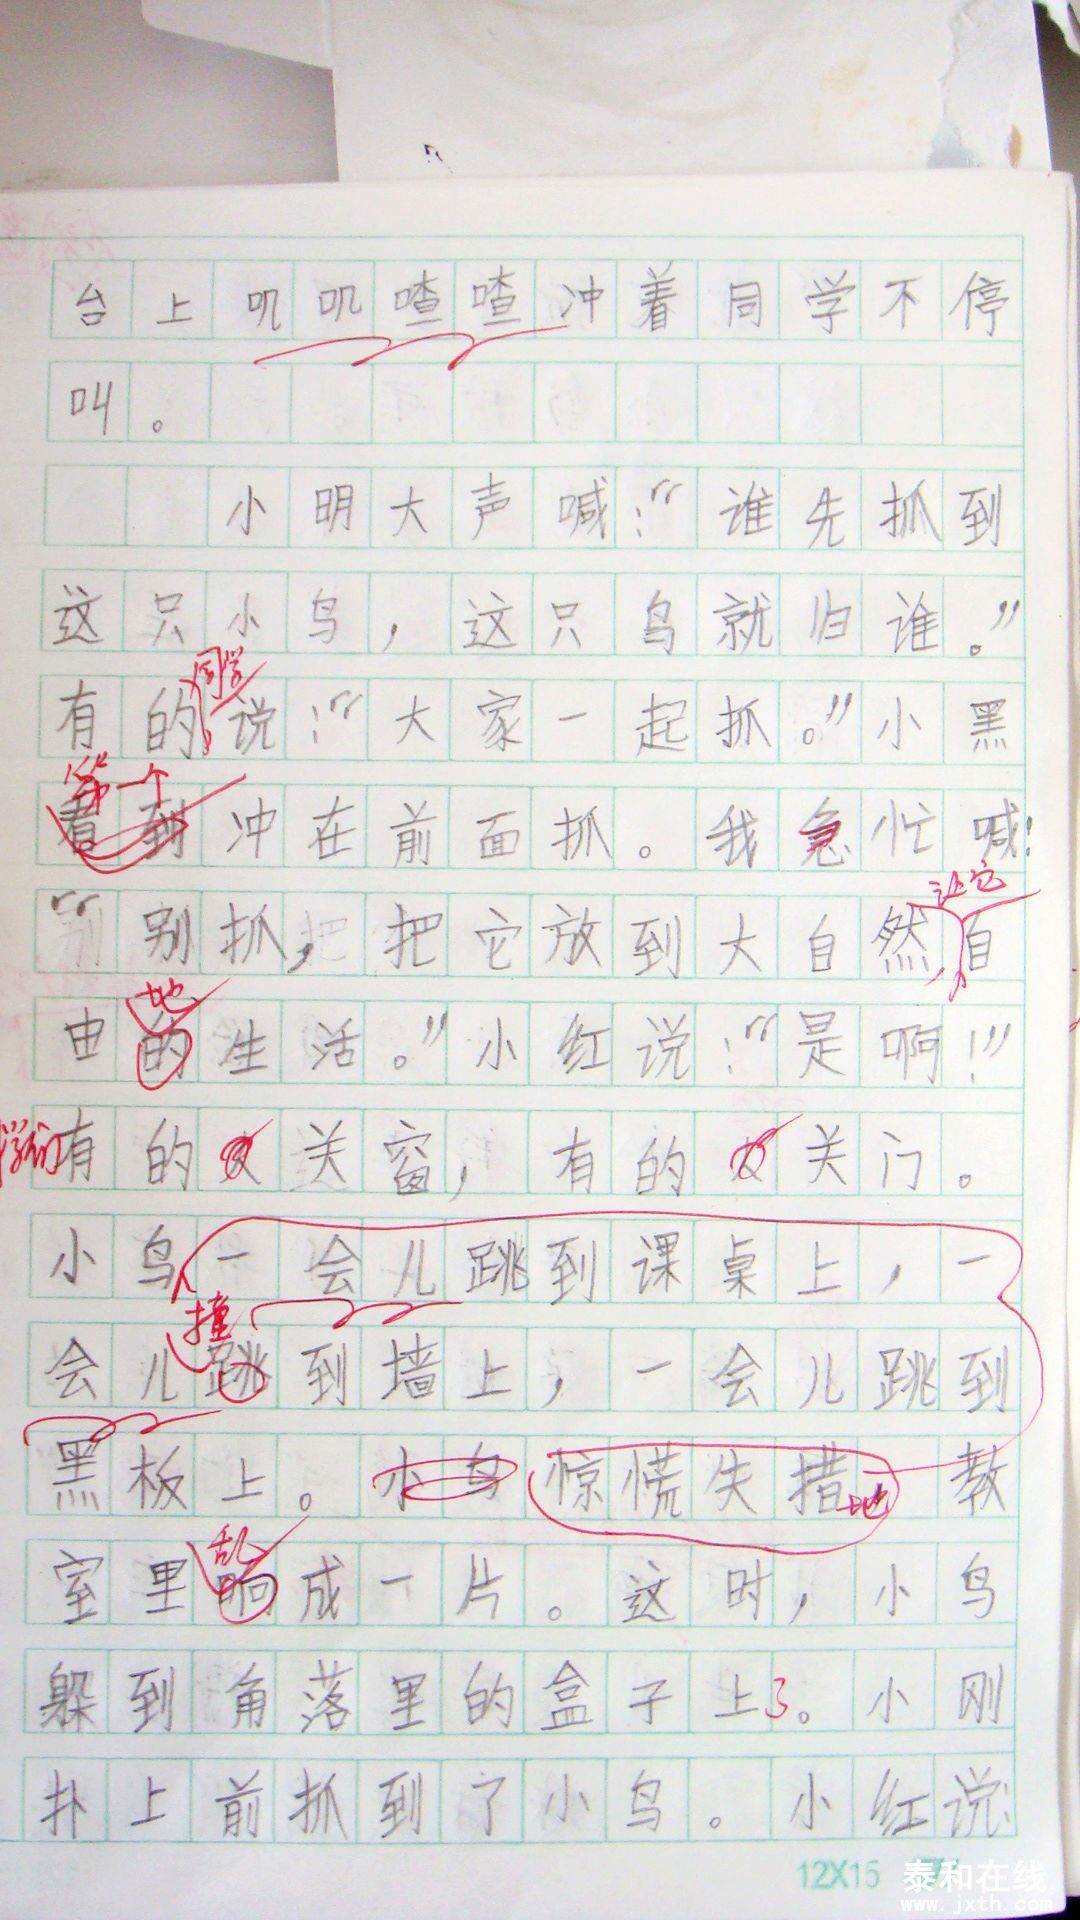 台上叽叽喳喳冲着同学不停
叫。
小明大声喊:“谁先抓到
这只小鸟，这只鸟就归谁。”
同学
有的说:“大家一起抓。”小黑
第一个
看到冲在前面抓。我急忙喊:
让它
“别抓，把它放到大自然,自
地
由的生活。”小红说:“是啊!”
学们
有的关窗，有的关门。
小鸟一会儿跳到课桌上，一
撞
会儿跳到墙上，一会儿跳到
黑板上。小鸟惊慌失措地教
乱
室里响成一片。这时，小鸟
躲到角落里的盒子上了。小刚
扑上前抓到了小鸟。小红说:
12X15
泰和在线
www.jxth.com